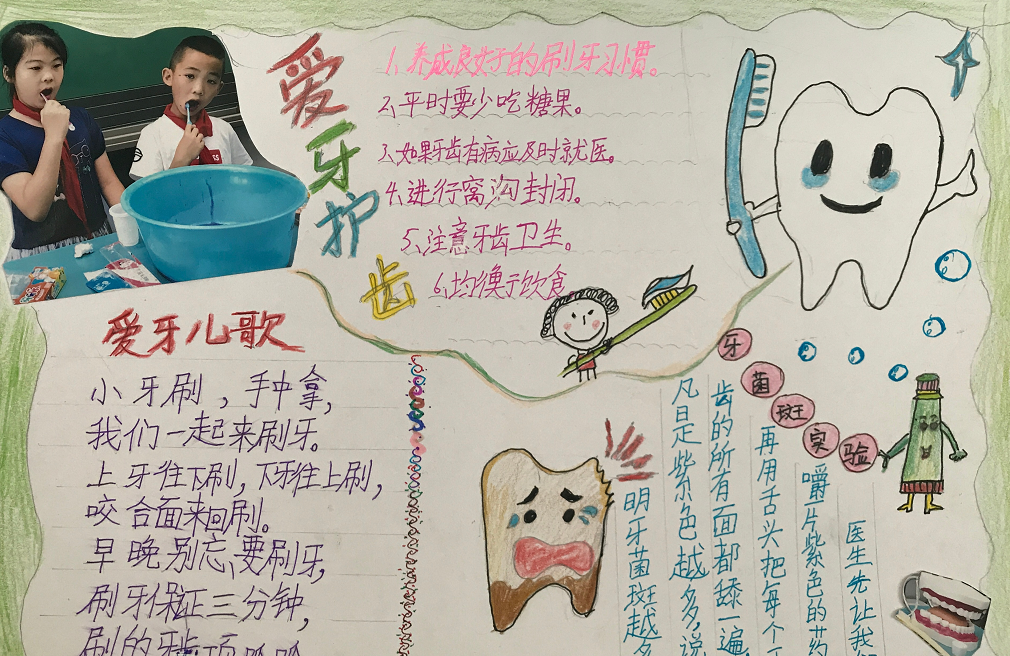 爱牙护齿
1、养成良好的刷牙习惯。
2、平时要少吃糖果。
3、如果牙齿有病应及时就医。
4、进行窝沟封闭。
5、注意牙齿卫生。
6、均衡于饮食
爱牙儿歌
小牙刷，手中拿，
我们一起来刷牙。
上牙往下刷，下牙往上刷，
咬合面来回刷。
早晚别忘要刷牙，
刷牙保证三分钟，
刷的牙
牙菌斑实验
医生先让我
嚼一片紫色的药
再用舌头把每个
齿的所有面都舔一遍
凡是紫色越多，说
明牙菌斑越多